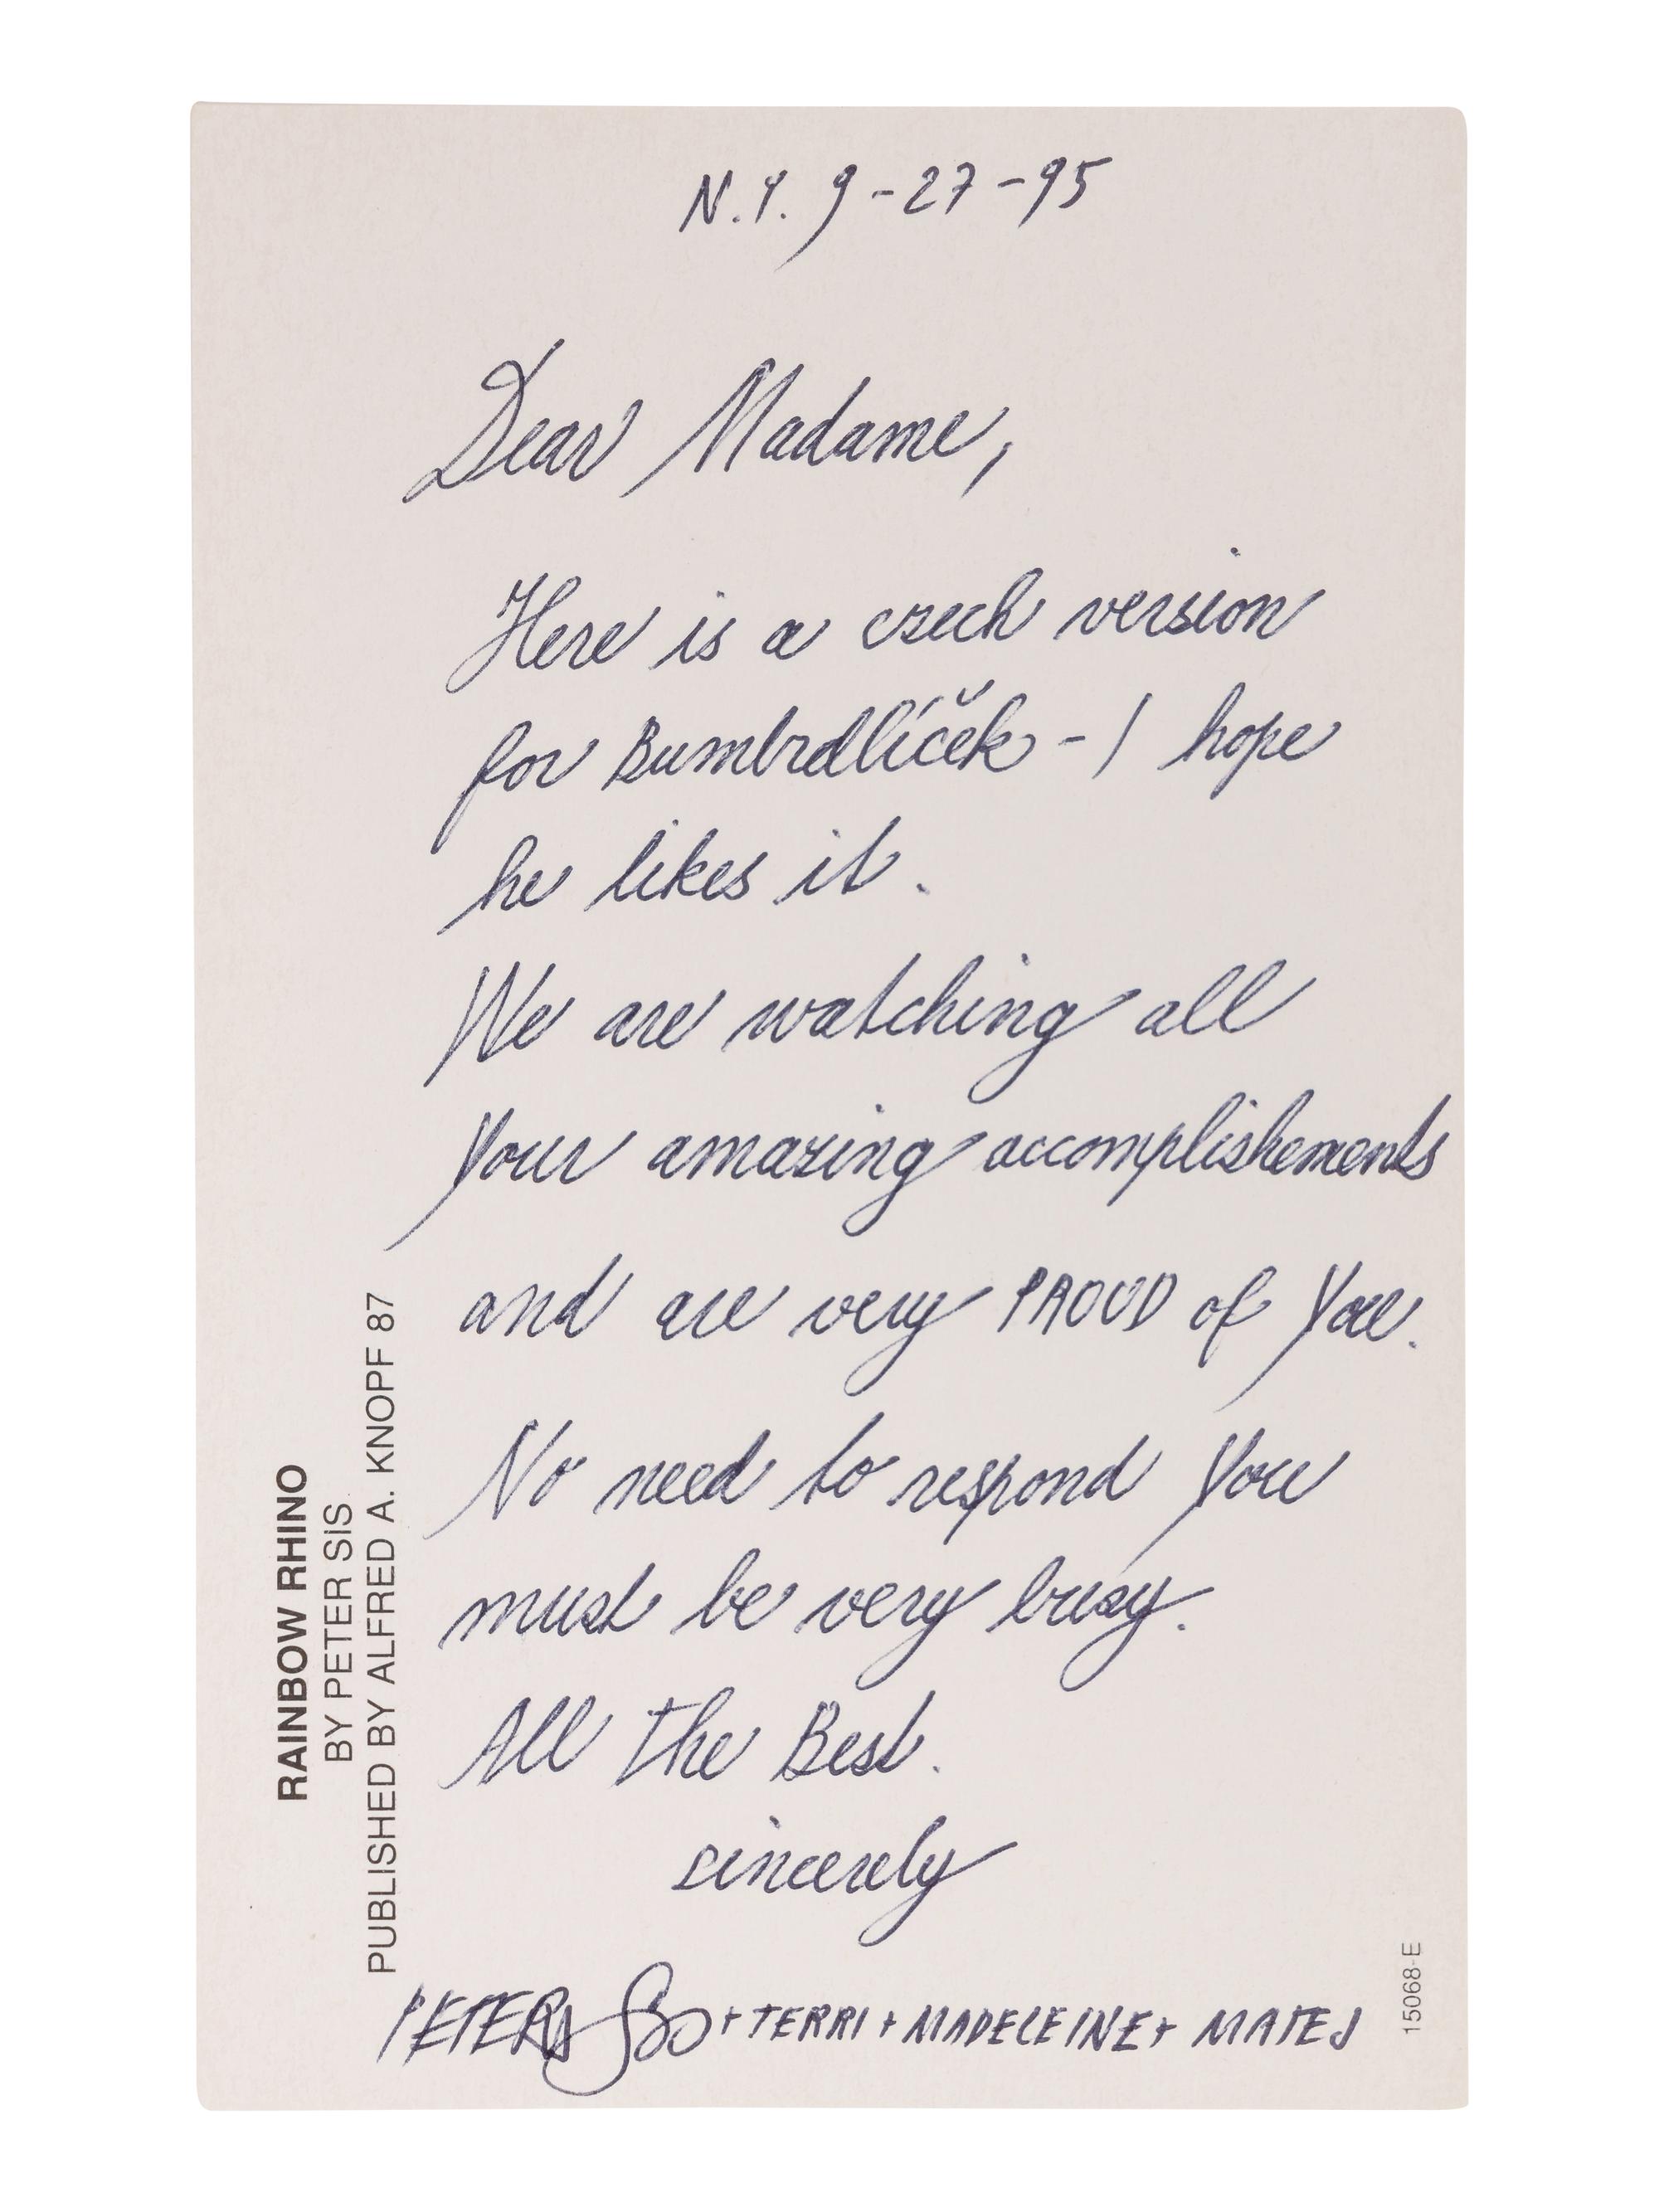 N.Y. 9-27-95
Dear Madame,
Here is a czech version
for Bumbrdlíček - I hope
he likes it.
We are watching all
Your amazing accomplishements
and are very PROUD of You.
No need to respond You
must be very busy.
All the Best.
sincerely
PETER SÍS + TERRI + MADELEINE + MATEJ
RAINBOW RHINO
BY PETER SIS
PUBLISHED BY ALFRED A. KNOPF 87
15068-E